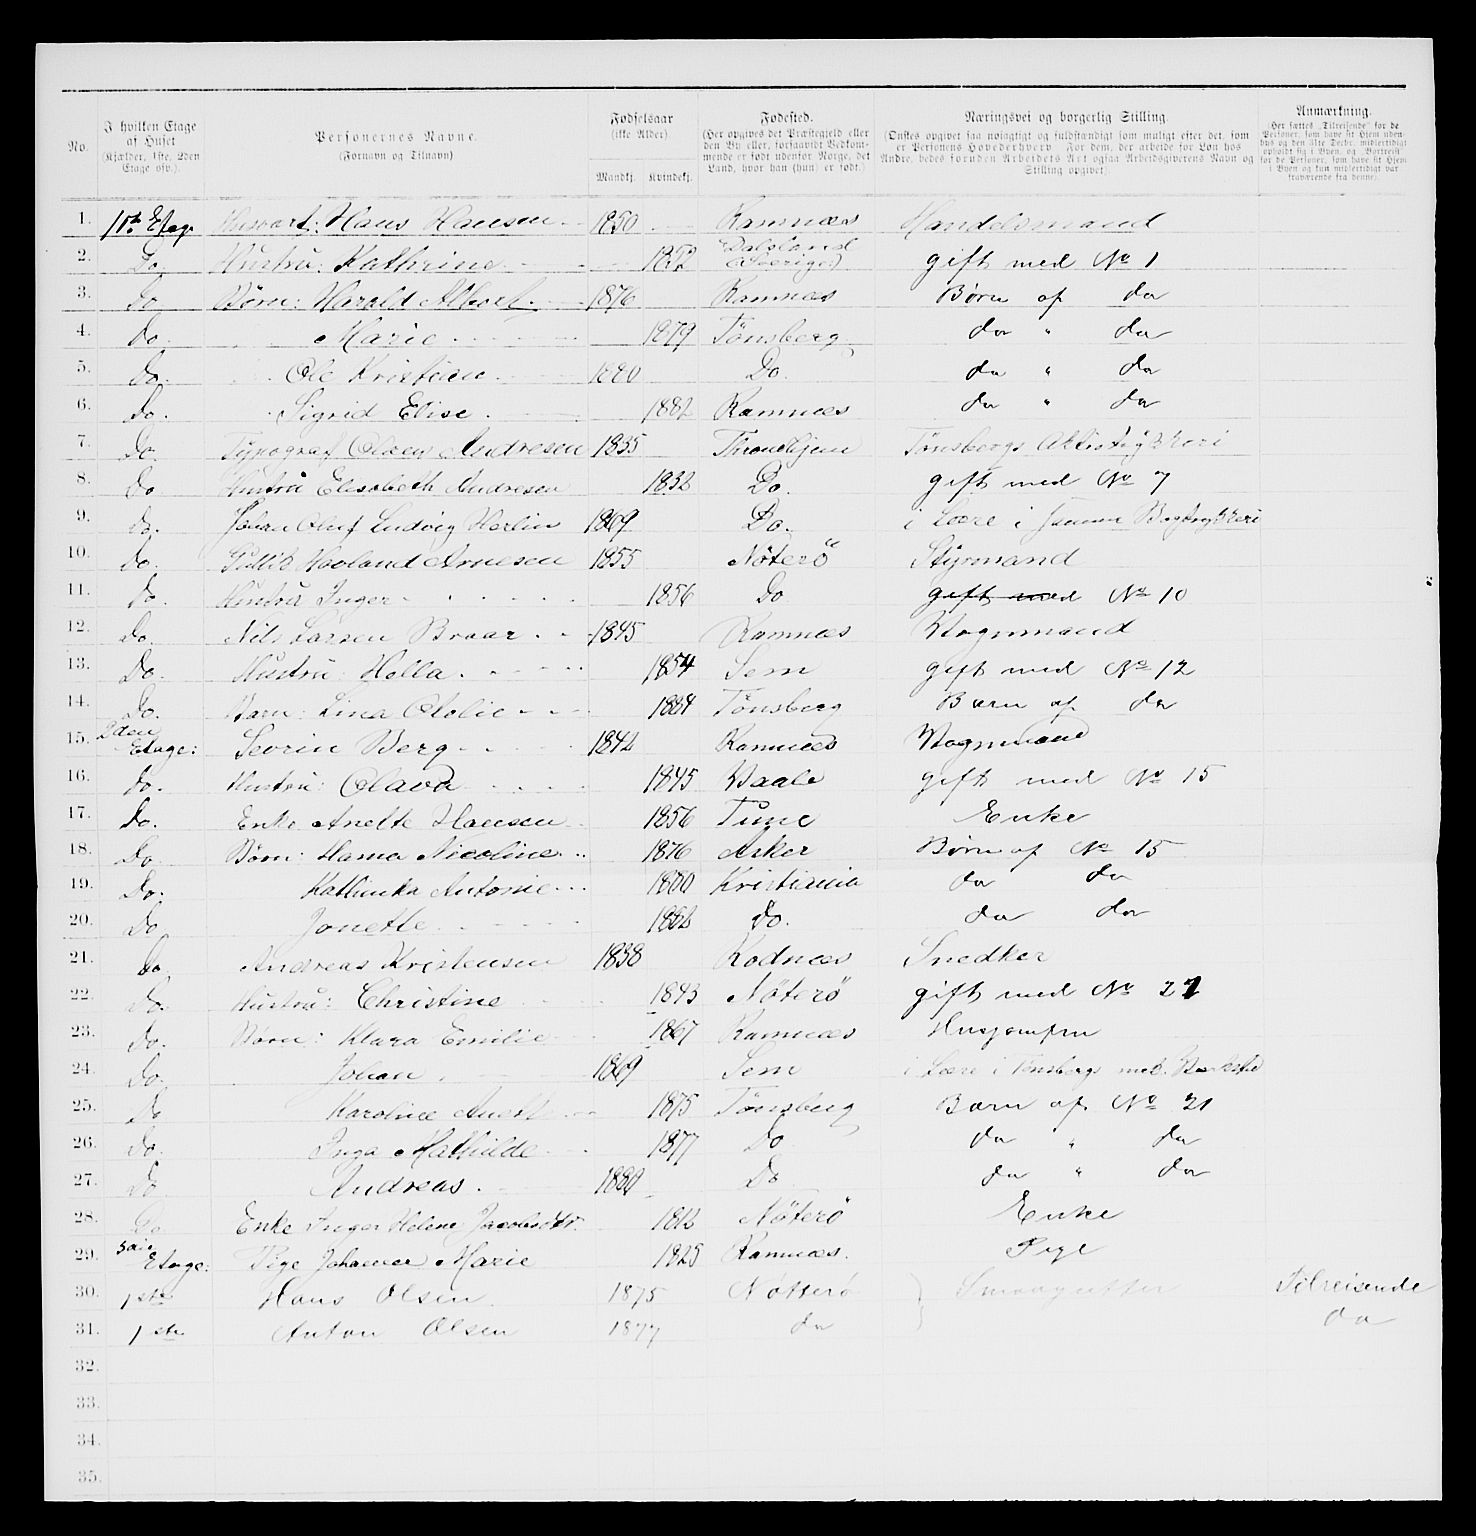 No. | I hvilken Etage af Huset (Kjælder, 1ste, 2den Etage osv.). | Personernes Navne. (Fornavn og Tilnavn) | Fødselsaar (ikke Alder). Mandkj. Kvindekj. | Fødested. (Her opgives det Præstegjeld eller den By eller, forsaavidt Vedkommende er født udenfor Norge, det Land, hvor han (hun) er født.) | Næringsvei og borgerlig Stilling. (Ønskes opgivet saa nøiagtigt og fuldstændigt som muligt efter det, som er Personens Hovederhverv. For dem, der arbeide for Løn hos Andre, bedes foruden Arbeidets Art ogsaa Arbeidsgiverens Navn og Stilling opgivet). | Anmærkning. (Her sættes „Tilreisende" for de Personer, som have sit Hjem udenbys og den 31te Decbr. midlertidigt opholdt sig i Byen, og „Bortreist" for de Personer, som have sit Hjem i Byen og kun midlertidigt var fraværende fra denne).
1. 1ste Etage Husvært: Hans Hansen 1850 Ramnæs Handelsmand
2. Do. Hustru: Kathrine 1852 Dalsland (Sverige) gift med No 1
3. Do Børn: Harald Albert. 1876 Ramnæs Børn af do
4. Do. Marie 1879 Tönsberg do " do
5. Do. Ole Kristian 1880 Do. do " do
6. Do. Sigrid Elise. 1882 Ramnæs do " do
7. Do. Typograf Olsen Andresen 1835 Throndhjem Tønsbergs
8. Do Hustru Elisabeth Andresen 1832 Do. gift med No 7
9. Do. Johan Oluf Ludvig Herlin 1869 Do. i Lære i samme Bogtrykkeri
10. Do. Gullik Havland Arnesen 1855 Nöterö Styrmand
11. Do. Hustru Inger 1856 Do gift med No 10
12. Do. Nils Larsen Braar. 1845 Ramnæs Vognmand
13. Do. Hustru: Hella. 1854 Sem gift med No 12
14. Do. Barn: Lina Otolie 1884 Tönsberg Barn af do
15. 2den Etage: Sevrin Berg 1842 Ramnæs Vognmand
16. Do. Hustru: Olava 1845 Vaale gift med No 15
17. Do. Enke Anette Hansen 1856 Tune Enke
18. Do Børn: Hama Nicoline 1876 Asker Børn af No 15
19. Do. Kathinka Antonie 1880 Kristiania do do
20. Do Jonette 1882 Do. do do
21. Do Andreas Kristensen 1838 Rodnæs Snedker
22. Do. Hustru: Christine 1843 Nöterö gift med No 21
23. Do. Børn: Klara Emilie 1867 Ramnæs Husjomfru
24. Do. Johan. 1869 Sem i Lære i Tönsbergs mek. Værksted
25. Do Karoline 1875 Tönsberg Barn af No 21
26. Do. Inga Mathilde 1877 Do do " do
27. Do Andreas. 1880 Do do " do
28. Do Enke Inger Helene Jacobsdtr. 1812 Nöterö Enke
29. 3die Etage: Pige Johanne Marie 1825 Ramnæs. Pige
30. 1ste Hans Olsen 1875 Nötterö } Smaagutter Tilreisende
31. 1ste Anton Olsen 1877 do do
32.
33.
34.
35.